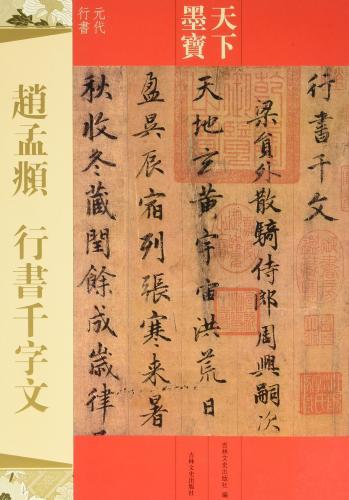 天下
墨寶
元代
行書
趙孟頫 行書千字文
行書千文
梁貟外散騎侍郎周興嗣次
天地玄黄宇宙洪荒日
盈昃辰宿列張寒来暑
秋收冬藏閏餘成歲律
吉林文史出版社 編
吉林文史出版社